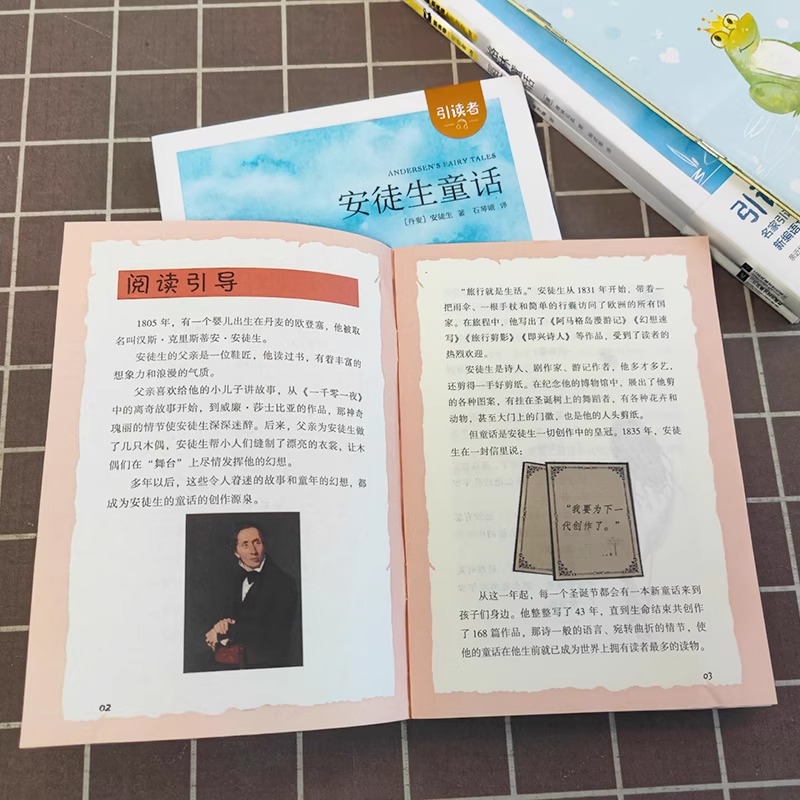 引读者
ANDERSEN'S FAIRY TALES
安徒生童话
［丹麦］安徒生 著 石琴娥 译
名家引
新编语
阅读引导
1805 年，有一个婴儿出生在丹麦的欧登塞，他被取
名叫汉斯·克里斯蒂安·安徒生。
安徒生的父亲是一位鞋匠，他读过书，有着丰富的
想象力和浪漫的气质。
父亲喜欢给他的小儿子讲故事，从《一千零一夜》
中的离奇故事开始，到威廉·莎士比亚的作品，那神奇
瑰丽的情节使安徒生深深迷醉。后来，父亲为安徒生做
了几只木偶，安徒生帮小人们缝制了漂亮的衣裳，让木
偶们在“舞台”上尽情发挥他的幻想。
多年以后，这些令人着迷的故事和童年的幻想，都
成为安徒生的童话的创作源泉。
02
“旅行就是生活。”安徒生从 1831 年开始、带着一
把雨伞、一根手杖和简单的行囊访问了欧洲的所有国
家。在旅程中，他写出了《阿马格岛漫游记》《幻想速
写》《旅行剪影》《即兴诗人》等作品，受到了读者的
热烈欢迎。
安徒生是诗人、剧作家、游记作者，他多才多艺，
还剪得一手好剪纸。在纪念他的博物馆中，展出了他剪
的各种图案，有挂在圣诞树上的舞蹈者，有各种花卉和
动物，甚至大门上的门徽，也是他的人头剪纸。
但童话是安徒生一切创作中的皇冠。1835 年，安徒
生在一封信里说：
“我要为下一
代创作了。”
从这一年起，每一个圣诞节都会有一本新童话来到
孩子们身边。他整整写了 43 年，直到生命结束共创作
了 168 篇作品，那诗一般的语言、宛转曲折的情节，使
他的童话在他生前就已成为世界上拥有读者最多的读物。
03